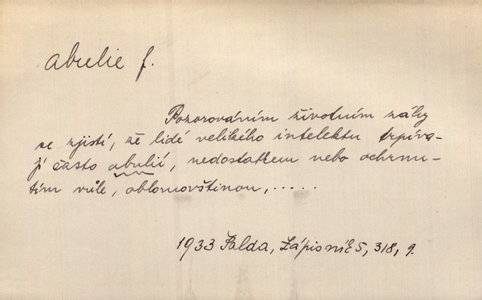 abulie f.
Pozorováním životním záhy
se zjistí, že lidé velikého intelektu trpíva-
jí často abulií, nedostatkem nebo ochrnu-
tím vůle, oblomovštinou, .....
1933 Šalda, Zápisník 5, 318, 9.